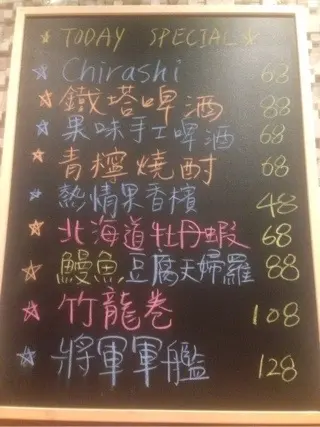 ★ TODAY SPECIAL ★
☆ Chirashi 68
☆ 鐵塔啤酒 88
☆ 果味手工啤酒 68
☆ 青檸燒酎 68
☆ 熱情果香檳 48
☆ 北海道牡丹蝦 68
☆ 鰻魚豆腐天婦羅 88
☆ 竹龍卷 108
☆ 將軍軍艦 128